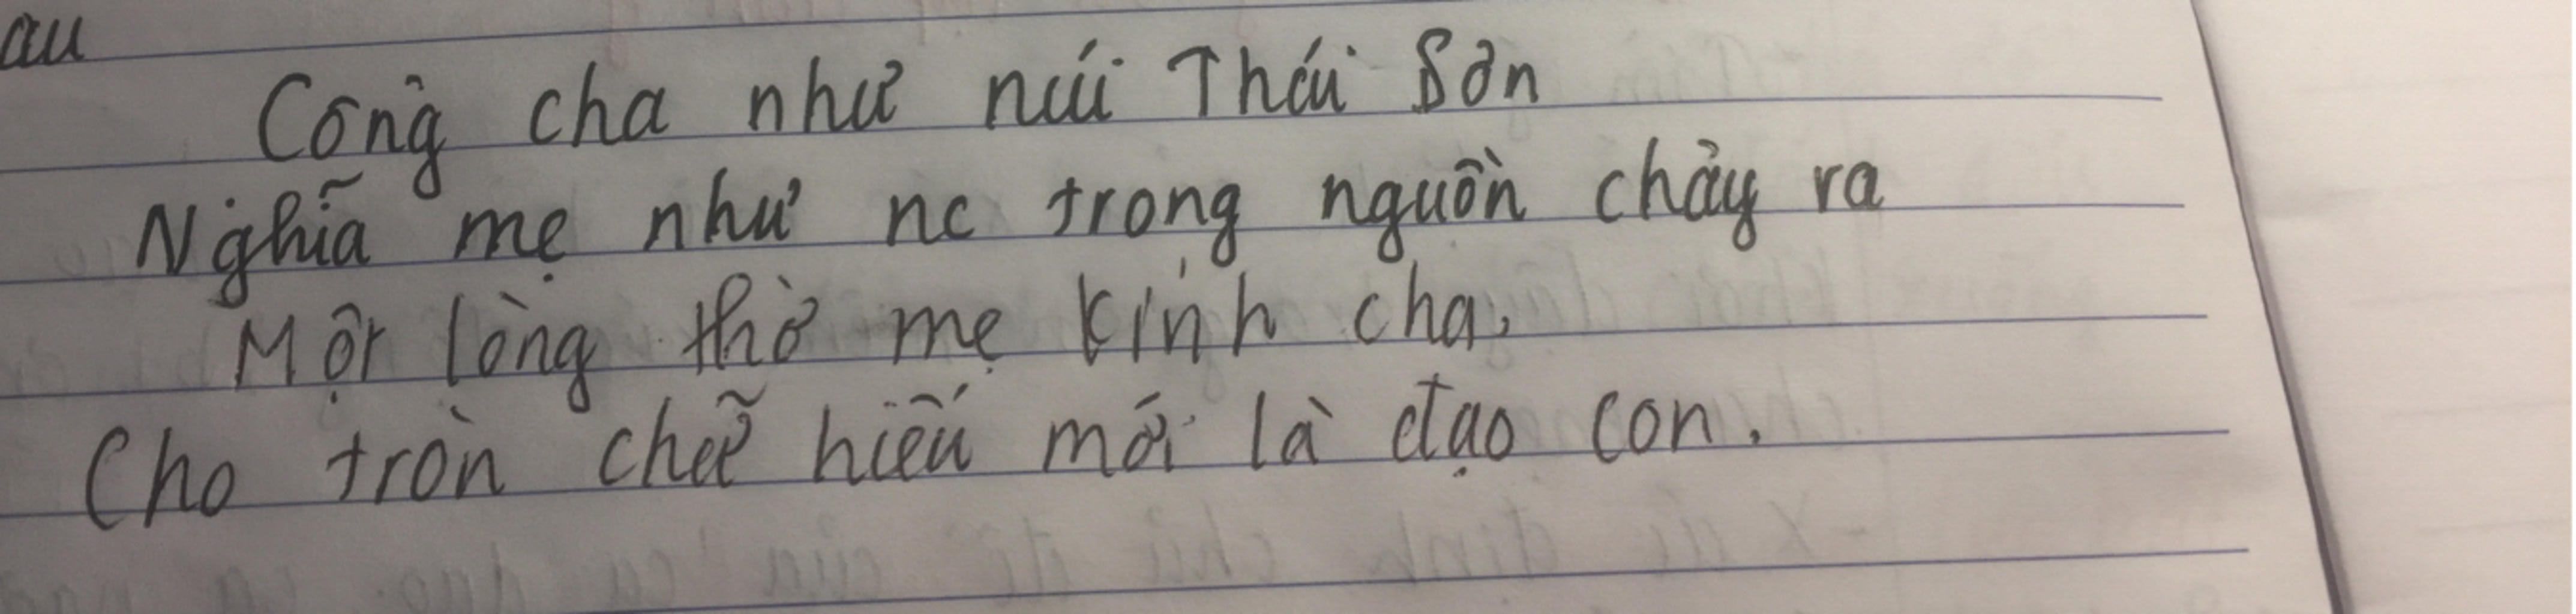 au
Công cha như núi Thái Sơn
Nghĩa mẹ như nc trong nguồn chảy ra
Một lòng thờ mẹ kính cha,
Cho tròn chữ hiếu mới là đạo con.